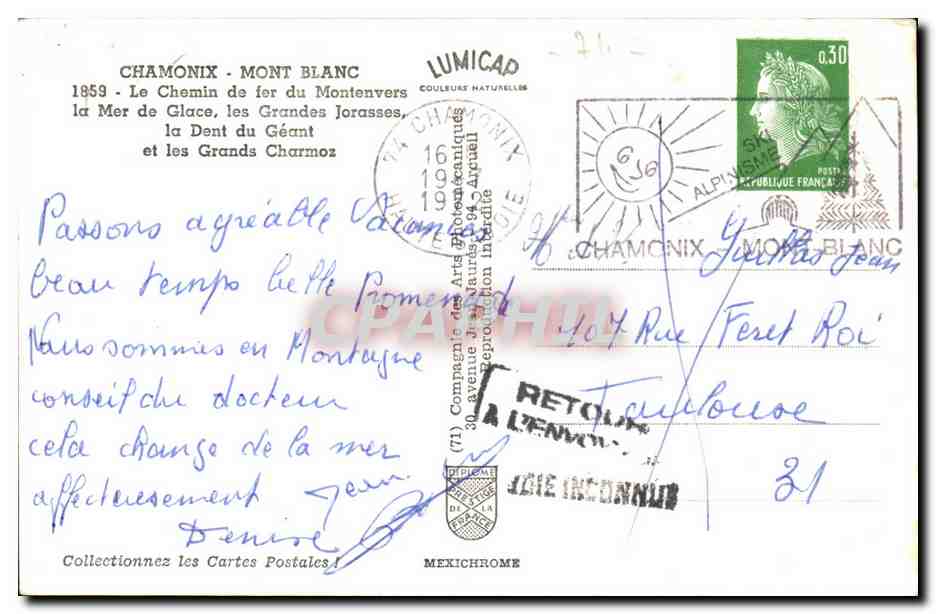 CHAMONIX - MONT BLANC
1859 - Le Chemin de fer du Montenvers
la Mer de Glace, les Grandes Jorasses,
la Dent du Géant
et les Grands Charmoz
LUMICAP
COULEURS NATURELLES
74 CHAMONIX
16
19
19
HAUTE
0,30
POSTES
REPUBLIQUE FRANÇAISE
SKI
ALPINISME
CHAMONIX - MONT-BLANC
Passons agréable Vacances
beau temps belle Promenade
Nous sommes en Montagne
conseil du docteur
cela change de la mer
affectueusement Jean
Denise
Collectionnez les Cartes Postales !
(71) Compagnie des Arts Photomécaniques
30, avenue Jean-Jaurès, 94 - Arcueil
Reproduction interdite
DIPLOME
PRESTIGE
DE LA
FRANCE
MEXICHROME
Jean
107 Rue Feret Roi
Toulouse
31
RETOUR
A L'ENVOY
VOIE INCONNUE
CPAPHIL